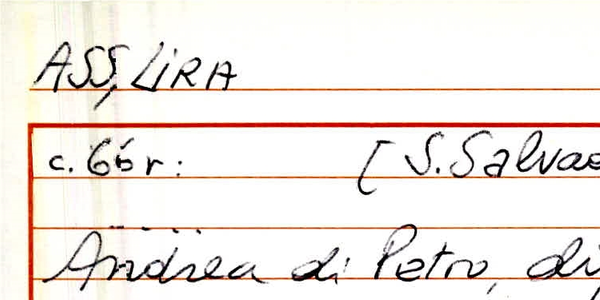 ASS, LIRA
c. 66r: [ S. Salvad
Andrea di Petro, di